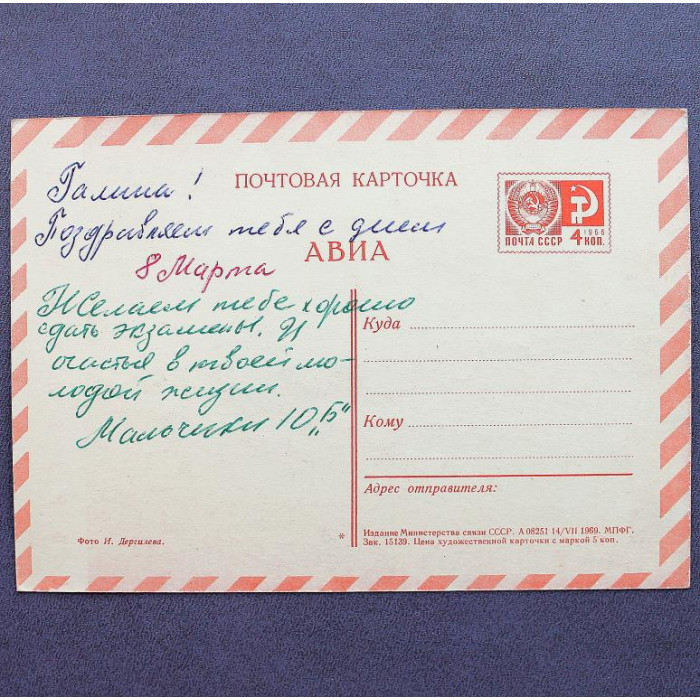 Галина!
ПОЧТОВАЯ КАРТОЧКА
Поздравляем тебя с днем
АВИА
8 Марта
ПОЧТА СССР
1966
4 КОП.
Желаем тебе хорошо
сдать экзамены. И
счастья в твоей мо-
лодой жизни.
Мальчики 10 „Б"
Куда
Кому
Адрес отправителя:
Фото И. Дергилева.
*
Издание Министерства связи СССР. А 08251 14/VII 1969. МПФГ.
Зак. 15139. Цена художественной карточки с маркой 5 коп.